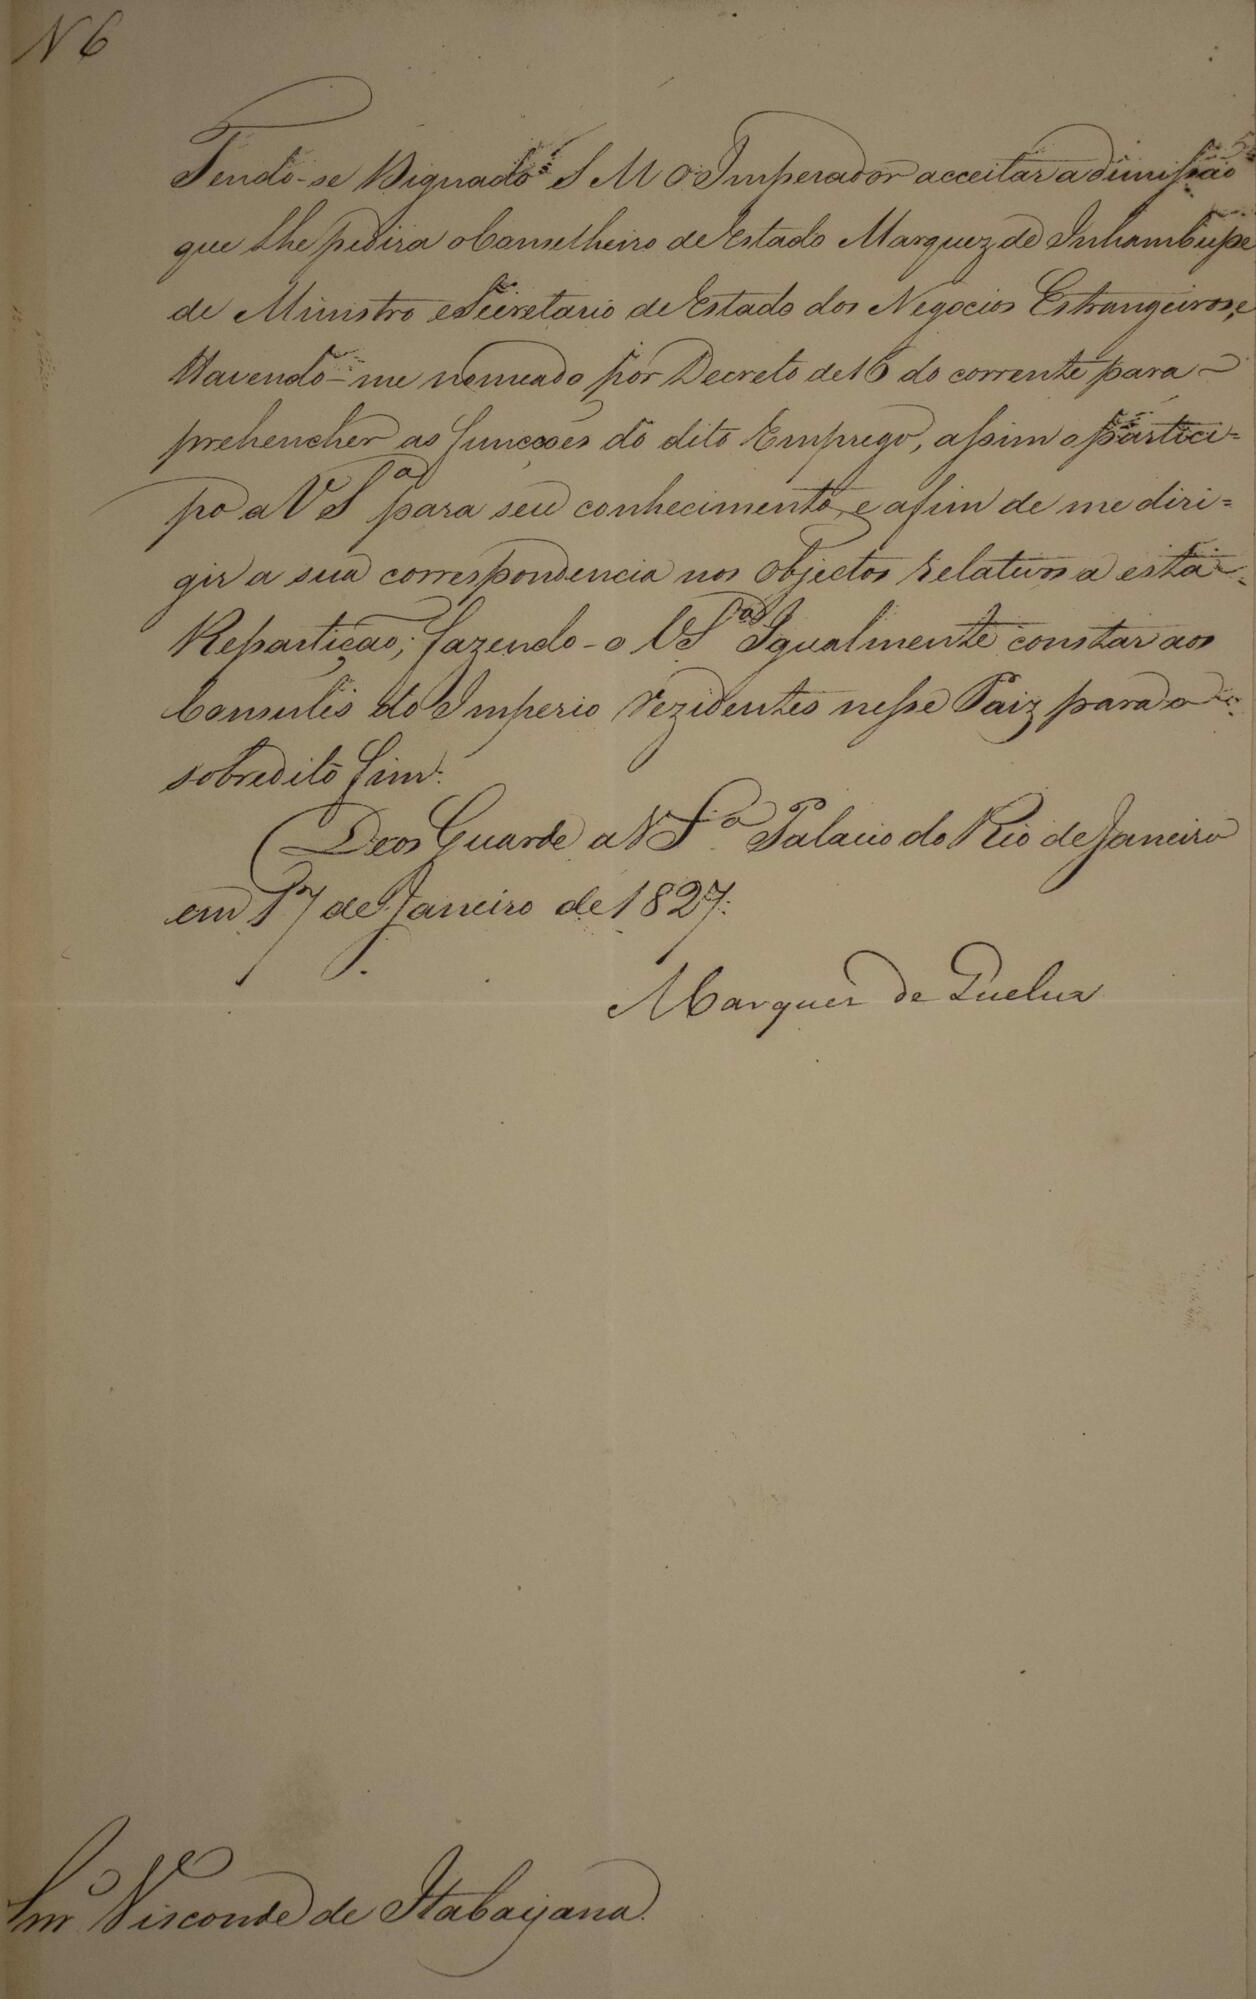 N 6
Tendo-se Dignado S M O Imperador acceitar a dimissão
que Lhe pedira o Conselheiro de Estado Marquez de Inhambupe
de Ministro e Secretario de Estado dos Negocios Estrangeiros, e
Havendo-me nomeado por Decreto de 16 do corrente para
prehencher as funccoés do dito Emprego, assim o partici=
po a V Sª para seu conhecimento, e afim de me diri=
gir a sua correspondencia nos objectos relativos a esta
Repartição; fazendo-o V Sª Igualmente constar aos
Consules do Imperio rezidentes nesse Paiz para o
sobredito fim.
Deos Guarde a V Sª Palacio do Rio de Janeiro
em 17 de Janeiro de 1827.
Marques de Queluz
Snr Visconde de Itabayana.